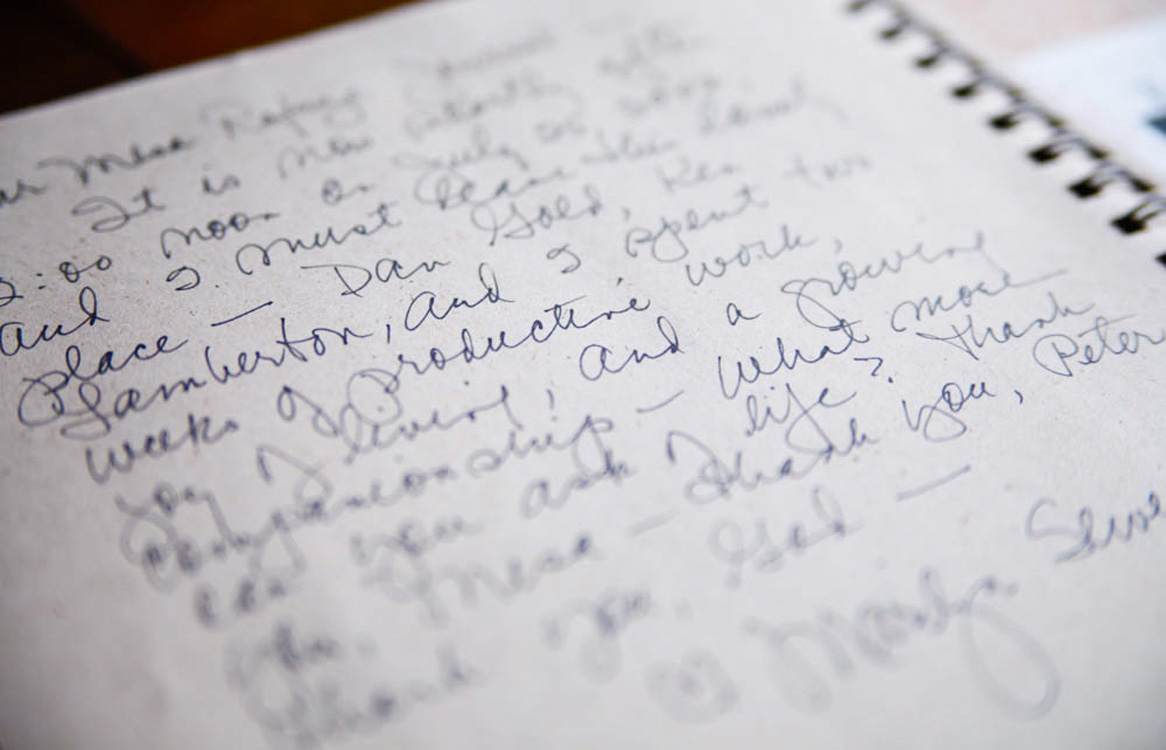 ar Mesa Refuge
It is now shortly after
2:00 noon on July
and I must leave this lovely
place — Dan Gold, Ken
Lamberton, and I spent two
weeks of productive work,
joy of living, and a growing
companionship — What more
can you ask of life? Thank
you, Mesa — Thank you, Peter
Thank you, God —